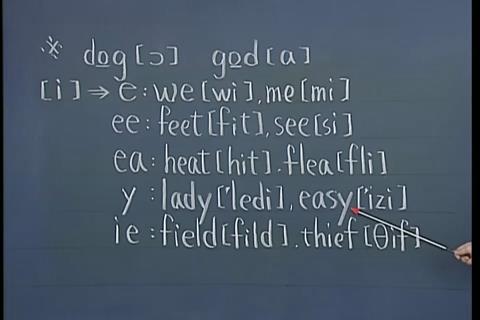 ※ dog [ɔ] god [a]
[i] → e : we [wi], me [mi]
ee : feet [fit], see [si]
ea : heat [hit]. flea [fli]
y : lady ['ledi], easy ['izi]
ie : field [fild]. thief [θif]